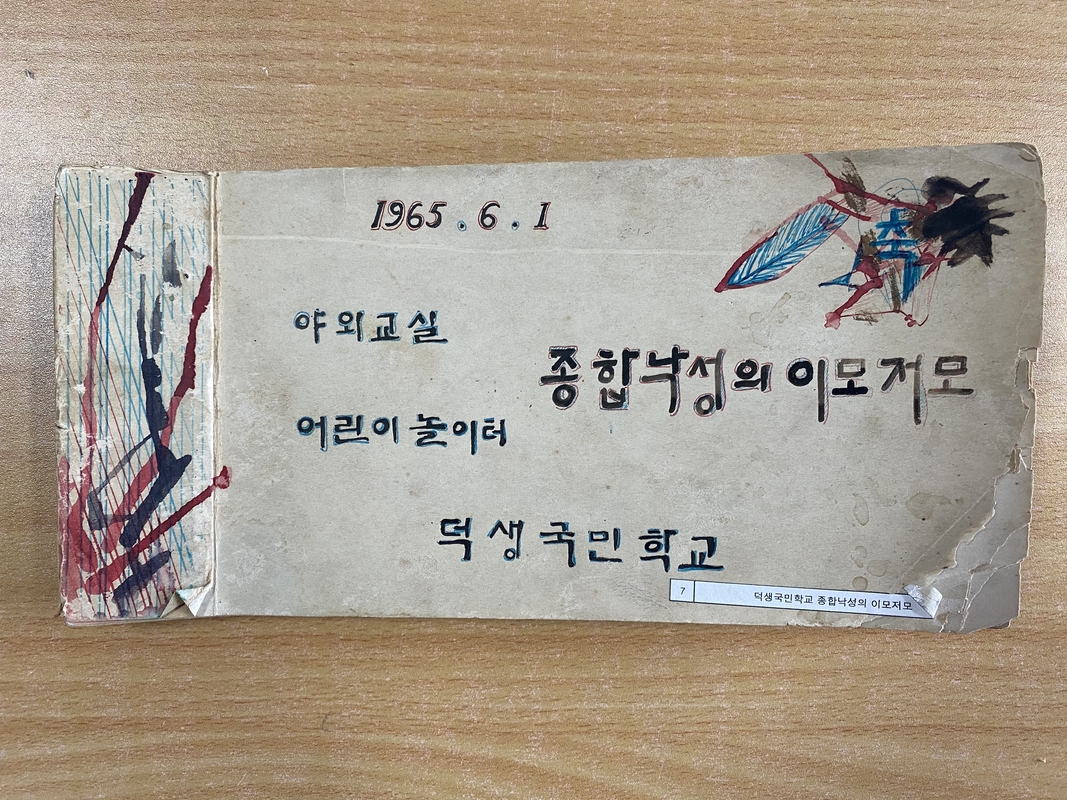 1965.6.1
축
야외교실
종합낙성의 이모저모
어린이 놀이터
덕생국민학교
7 덕생국민학교 종합낙성의 이모저모